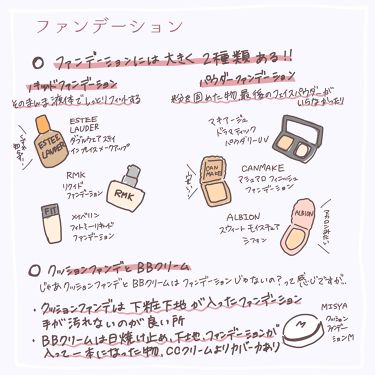 ファンデーション
ファンデーションには大きく2種類ある!!
リキッドファンデーション
そのまんま液体でしっとりフィットする
パウダーファンデーション
粉を固めた物 最後のフェイスパウダーが
いらなかったり
ESTEE
LAUDER
ダブルウェアステイ
インプレイスメークアップ
ESTEE
LAUDER
RMK
リクイド
ファンデーション
RMK
メイベリン
フィットミーリキッド
ファンデーション
FIT
マキアージュ
ドラマティック
パウダリーUV
CANMAKE
マシュマロフィニッシュ
ファンデーション
CAN
MAKE
ALBION
スウィートモイスチュア
シフォン
ALBION
クッションファンデとBBクリーム
じゃあクッションファンデとBBクリームはファンデーションじゃないの?って感じですが…
・クッションファンデは下地が入ったファンデーション
手が汚れないのが良い所
・BBクリームは日焼け止め、下地、ファンデーションが
入って一本になった物、CCクリームよりカバー力あり
MISYA
クッション
ファンデー
ションM
M